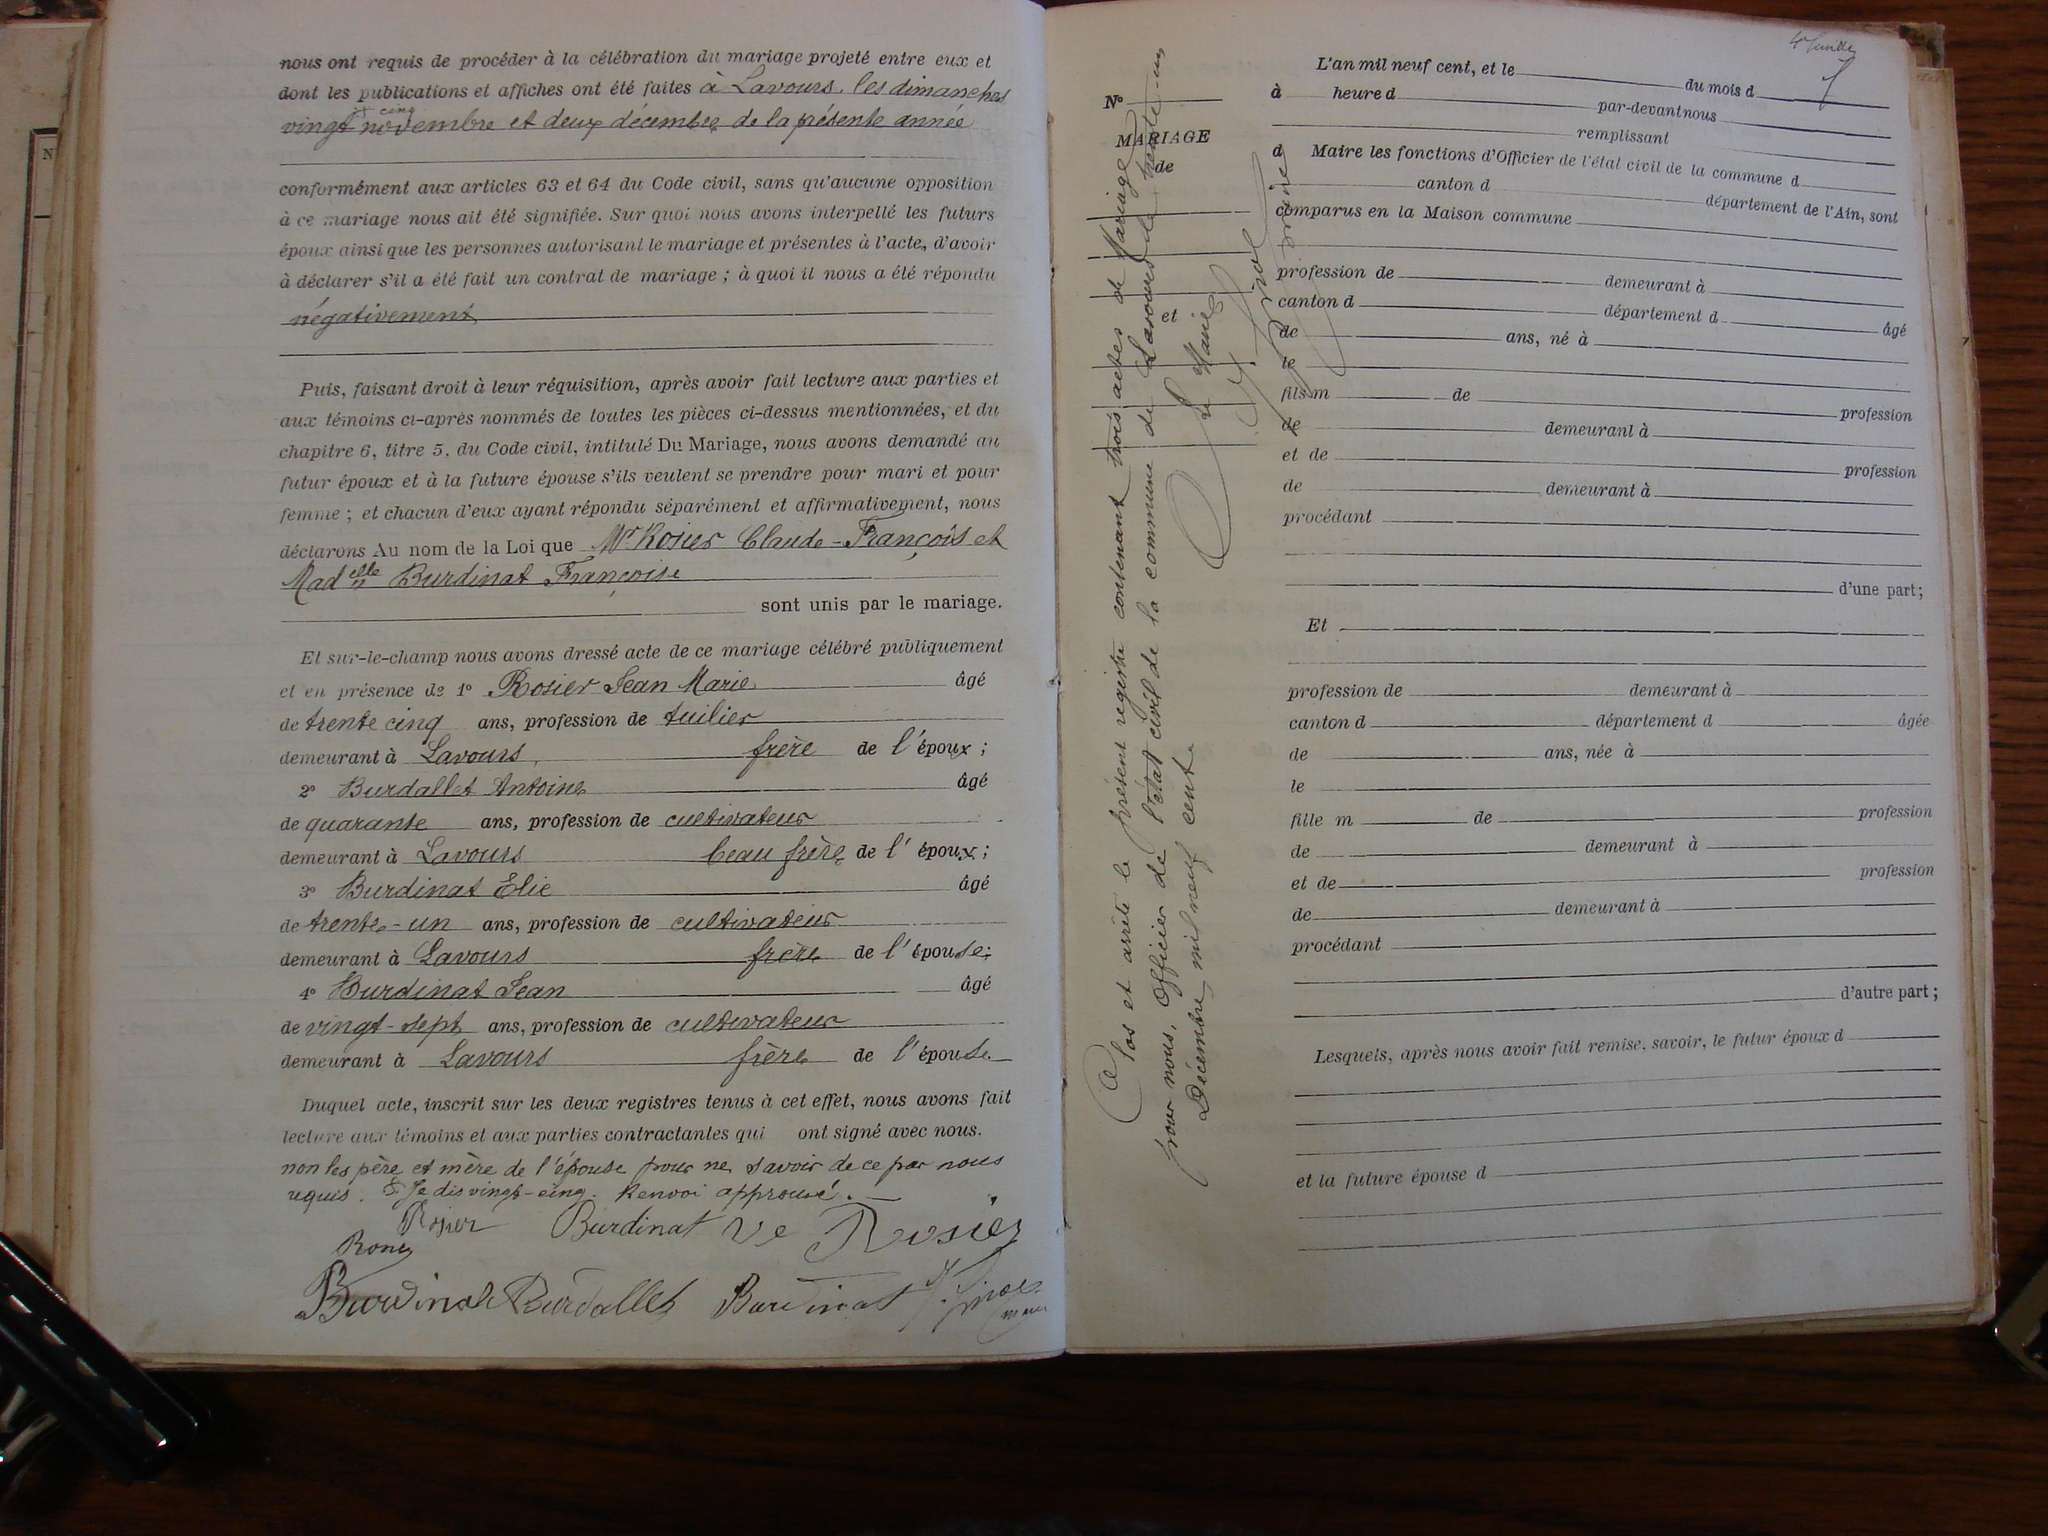 nous ont requis de procéder à la célébration du mariage projeté entre eux et
dont les publications et affiches ont été faites à Lavours, les dimanches
cinq
vingt novembre et deux décembre de la présente année
conformément aux articles 63 et 64 du Code civil, sans qu'aucune opposition
à ce mariage nous ait été signifiée. Sur quoi nous avons interpellé les futurs
époux ainsi que les personnes autorisant le mariage et présentes à l'acte, d'avoir
à déclarer s'il a été fait un contrat de mariage ; à quoi il nous a été répondu
négativement
Puis, faisant droit à leur réquisition, après avoir fait lecture aux parties et
aux témoins ci-après nommés de toutes les pièces ci-dessus mentionnées, et du
chapitre 6, titre 5, du Code civil, intitulé Du Mariage, nous avons demandé au
futur époux et à la future épouse s'ils veulent se prendre pour mari et pour
femme ; et chacun d'eux ayant répondu séparément et affirmativement, nous
déclarons Au nom de la Loi que Mr Rosier Claude-François et
Madelle Burdinat Françoise
sont unis par le mariage.
Et sur-le-champ nous avons dressé acte de ce mariage célébré publiquement
et en présence de 1º Rosier Jean Marie âgé
de trente cinq ans, profession de tuilier
demeurant à Lavours, frère de l'époux ;
2º Burdallet Antoine âgé
de quarante ans, profession de cultivateur
demeurant à Lavours beau frère de l' époux ;
3º Burdinat Elie âgé
de trente-un ans, profession de cultivateur
demeurant à Lavours frère de l'épouse ;
4º Burdinat Jean âgé
de vingt-sept ans, profession de cultivateur
demeurant à Lavours frère de l'épouse
Duquel acte, inscrit sur les deux registres tenus à cet effet, nous avons fait
lecture aux témoins et aux parties contractantes qui ont signé avec nous.
non les père et mère de l'épouse pour ne savoir de ce par nous
uquis. Je dis vingt-cinq. Renvoi approuvé.
Rosier Burdinat Ve Rosier
Burdinat Burdallet Burdinat
Nº
MARIAGE
de
et
Clos et arrêté le présent registre contenant trois actes de Mariage
pour nous, Officier de l'état civil de la commune de Lavours le trente-un
Décembre mil neuf cent
Le Maire
L'an mil neuf cent, et le du mois d
à heure d par-devant nous
remplissant
d Maire les fonctions d'Officier de l'état civil de la commune d
canton d département de l'Ain, sont
comparus en la Maison commune
profession de demeurant à
canton d département d âgé
de ans, né à
le
fils m de profession
de demeurant à
et de profession
de demeurant à
procédant
d'une part ;
Et
profession de demeurant à
canton d département d âgée
de ans, née à
le
fille m de profession
de demeurant à
et de profession
de demeurant à
procédant
d'autre part ;
Lesquels, après nous avoir fait remise, savoir, le futur époux d
et la future épouse d